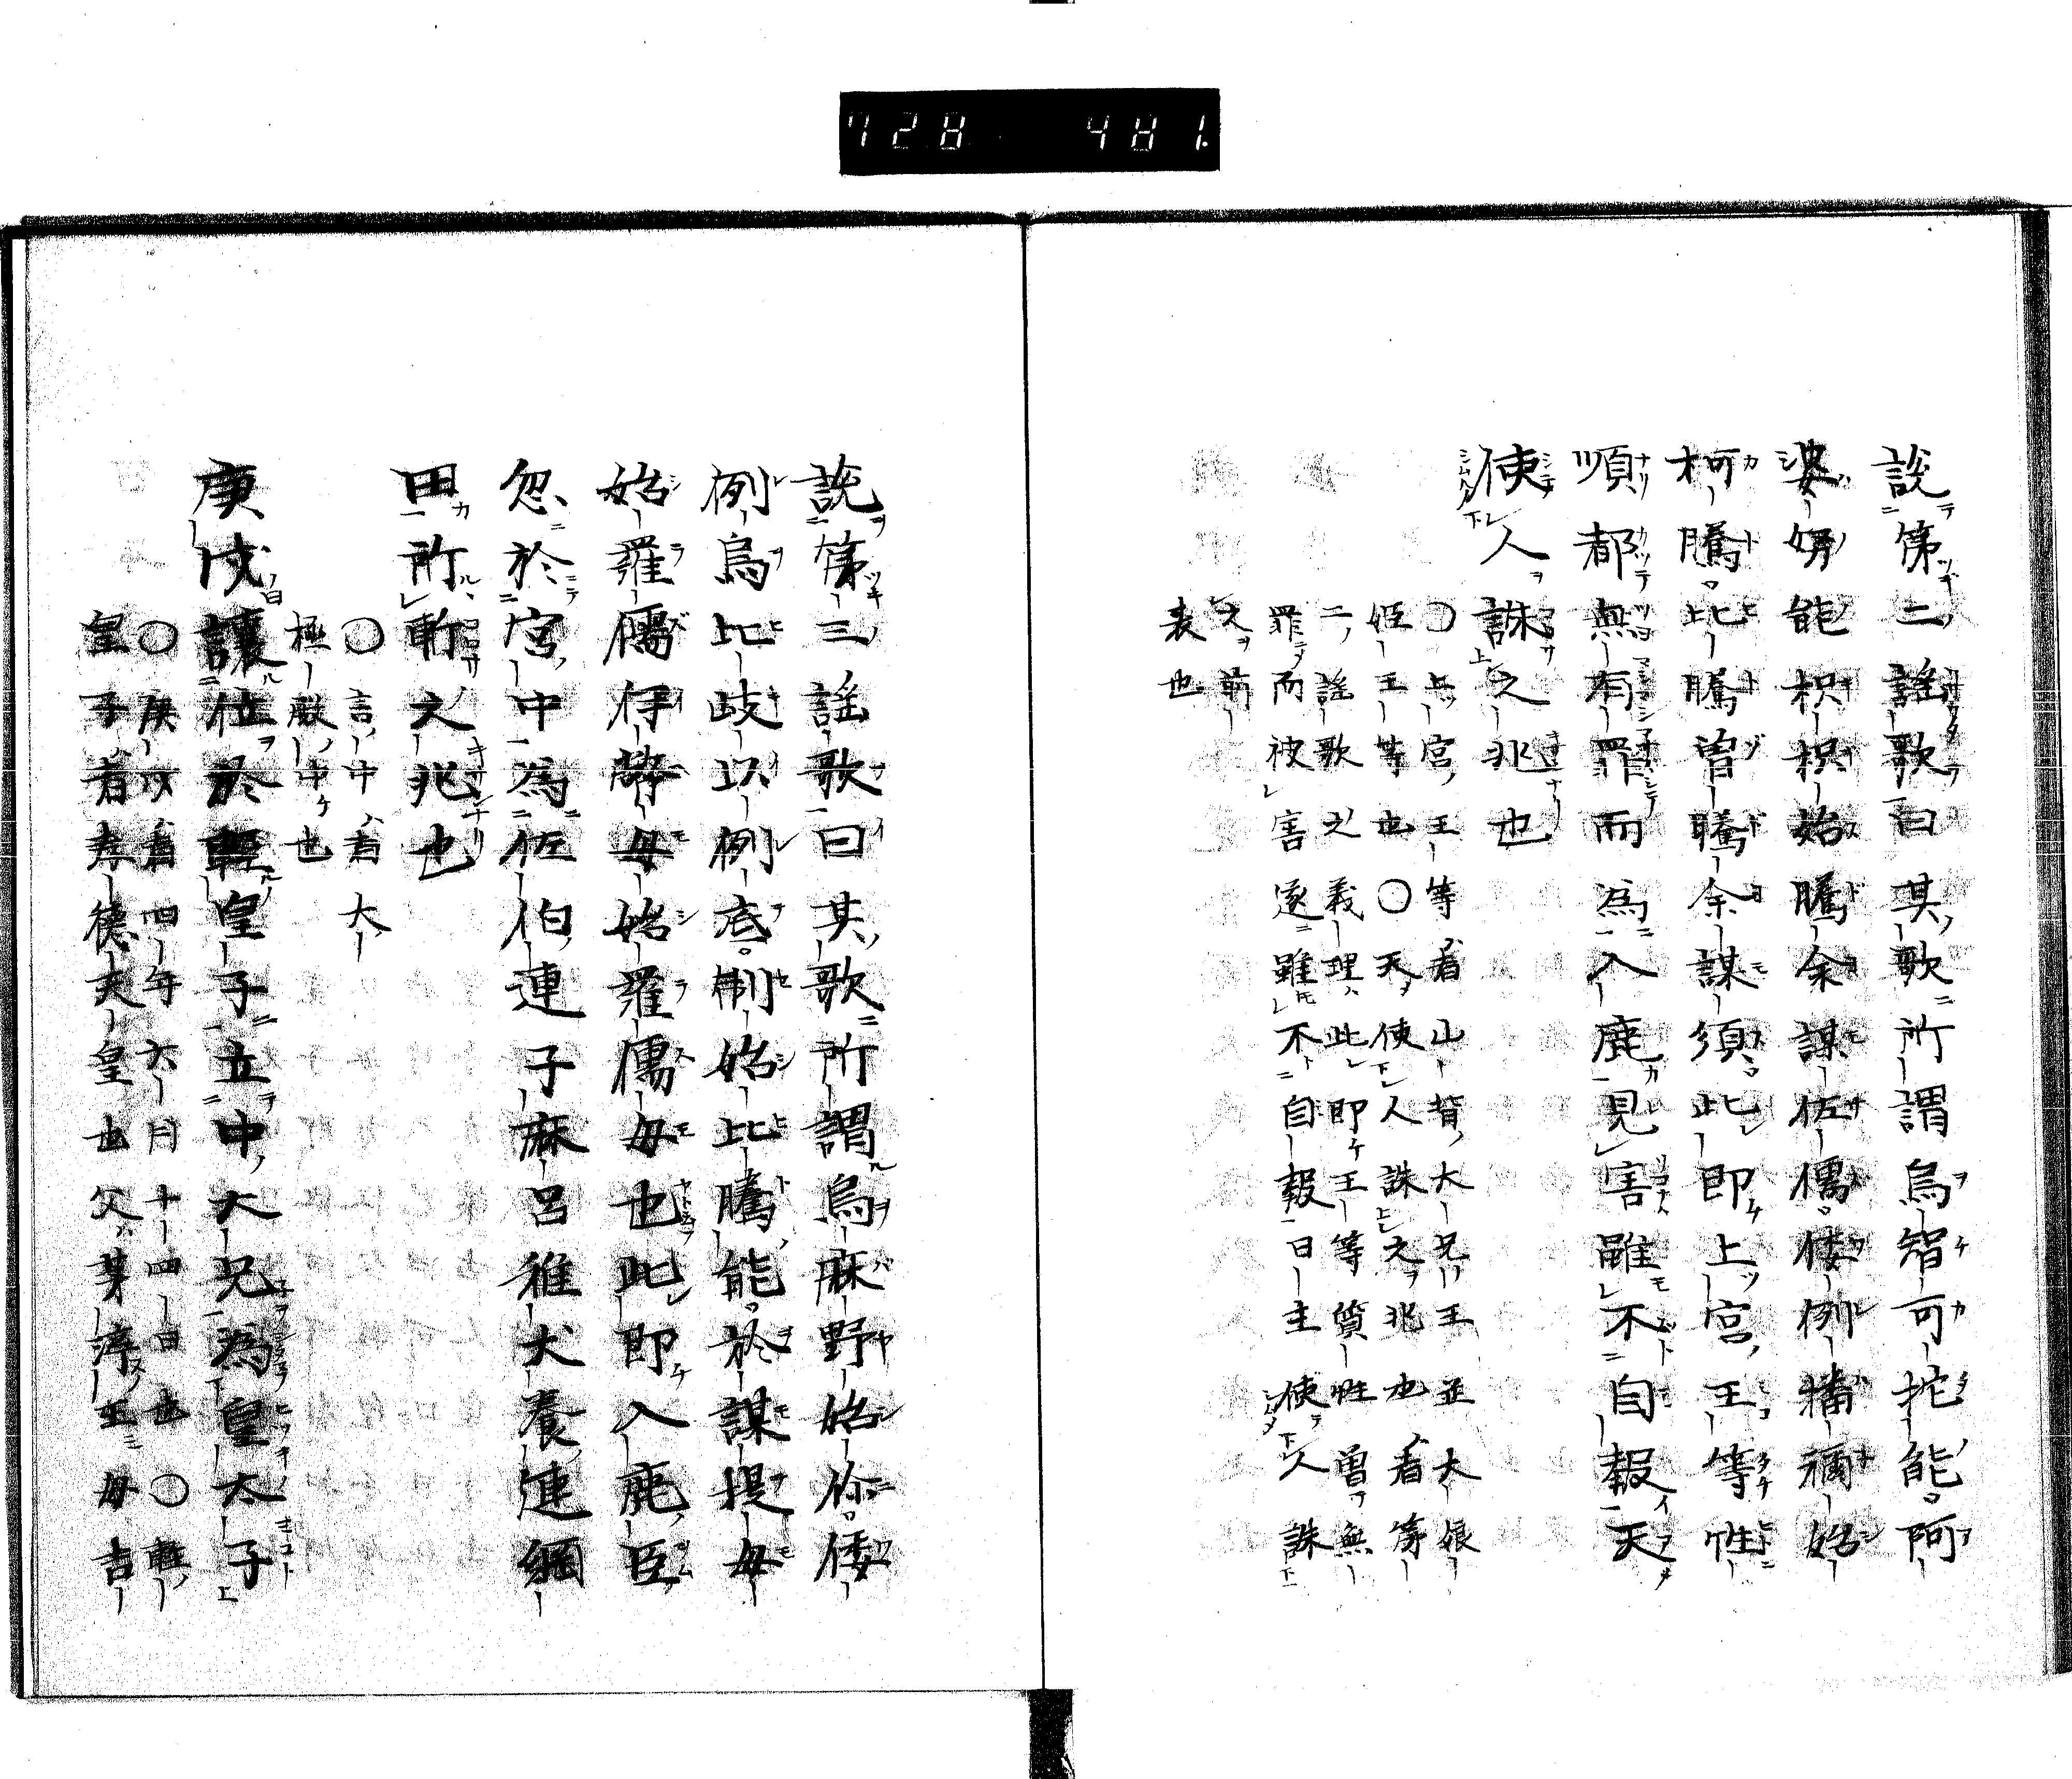 728 481.
説第二謡歌曰其歌所謂烏智可拕能阿
婆努能枳枳始騰余謀佐儒倭例播禰始
柯騰比騰曽騰余謀須此即上宮王等性
順都無有罪而為入鹿見害雖不自報天
使人誅之兆也
〇上宮王等者山背大兄王並大娘
姫王等也〇天使人誅之兆也者第
二謡歌之義理此即王等質性曽無
罪而被害遂雖不自報曰主使人誅
之前
表也
説第三謡歌曰其歌所謂烏麻野始儞倭
例烏比岐以例底制始比騰能於謀提母
始羅孺伊弊母始羅孺母也此即入鹿臣
忽於宮中為佐伯連子麻呂稚犬養連網
田所斬之兆也
〇言中者大
極殿中也
庚戌譲位於軽皇子立中大兄為皇太子
〇庚戌者四年六月十四日也〇軽
皇子者孝徳天皇也父茅渟王母吉